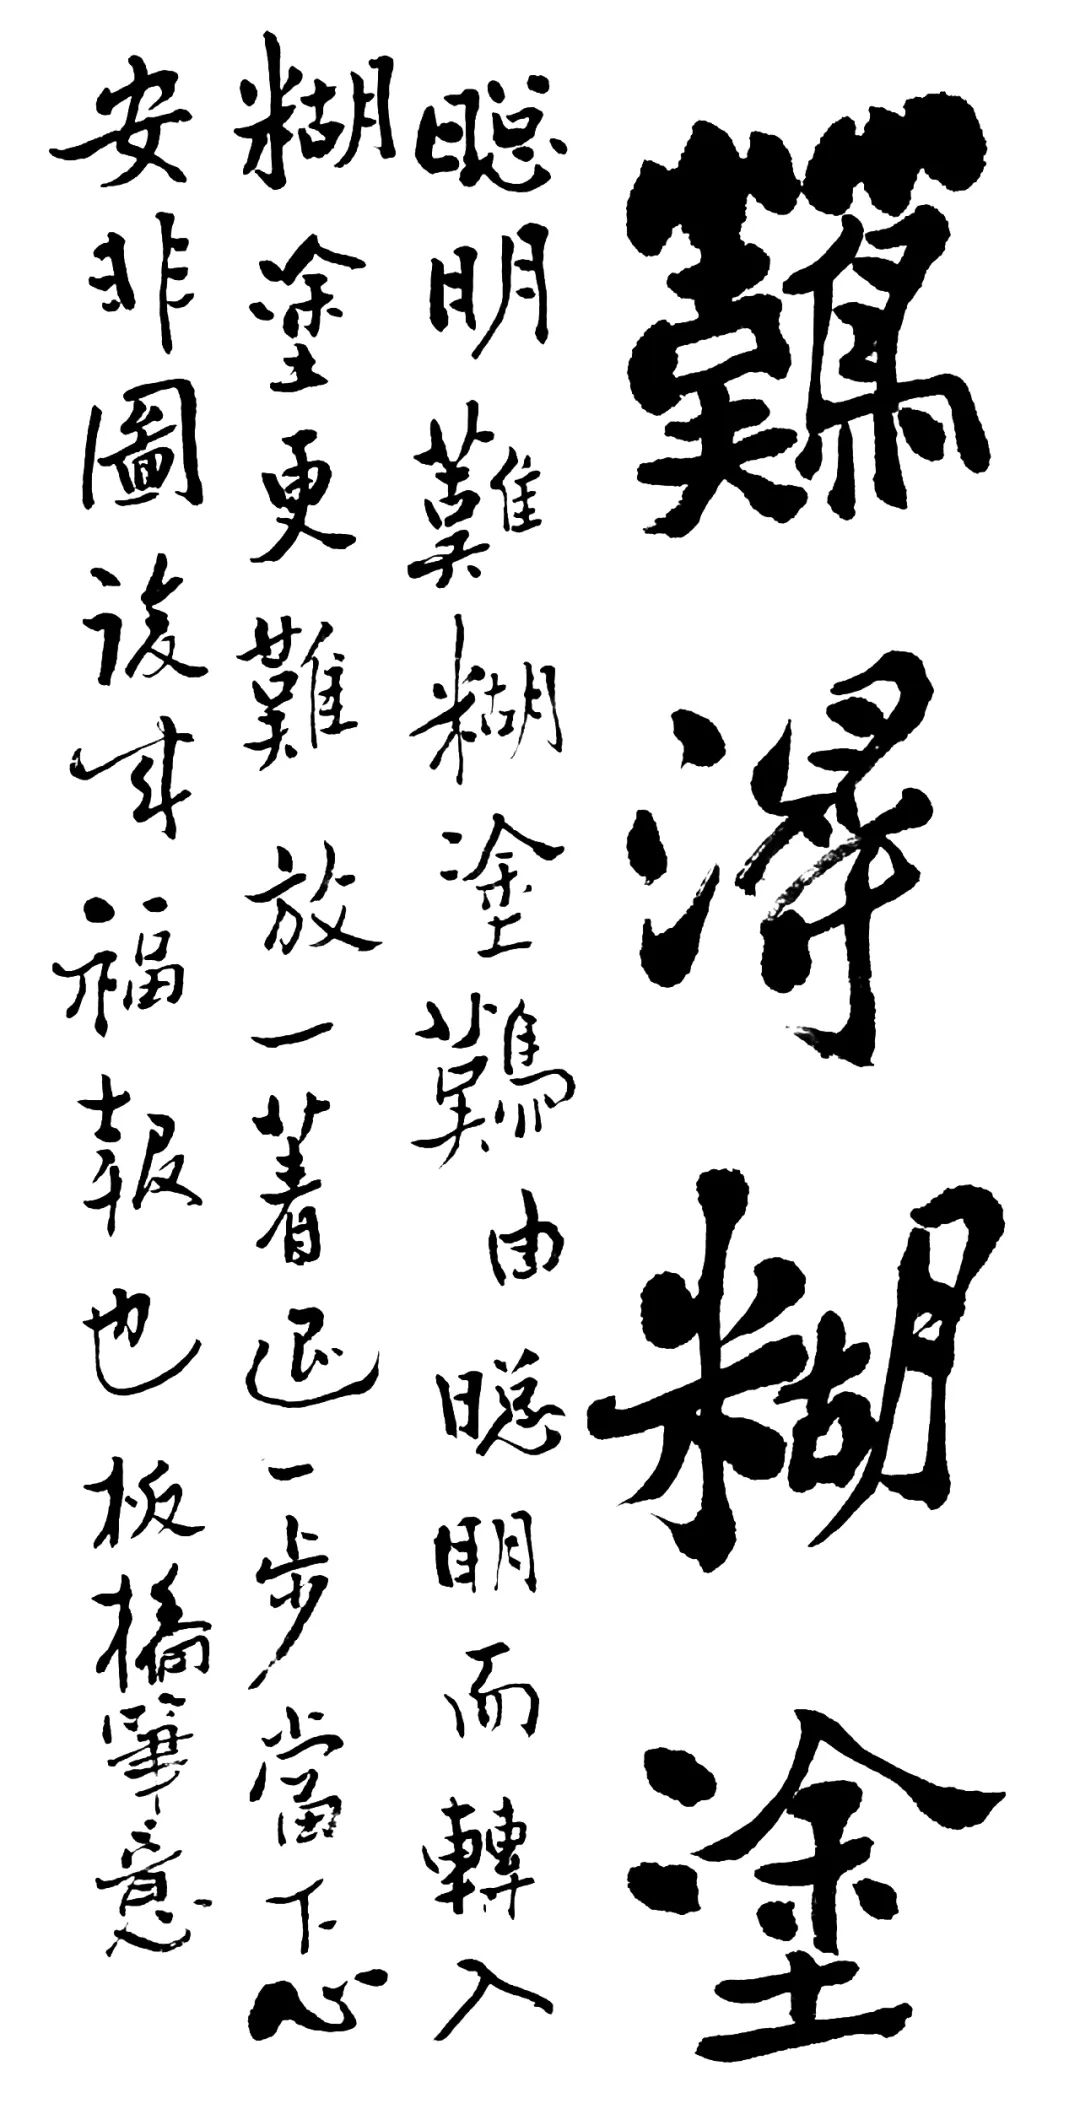 難得糊塗
聰明難糊塗難由聰明而轉入
糊塗更難放一著退一步當下心
安非圖後來福報也板橋筆意